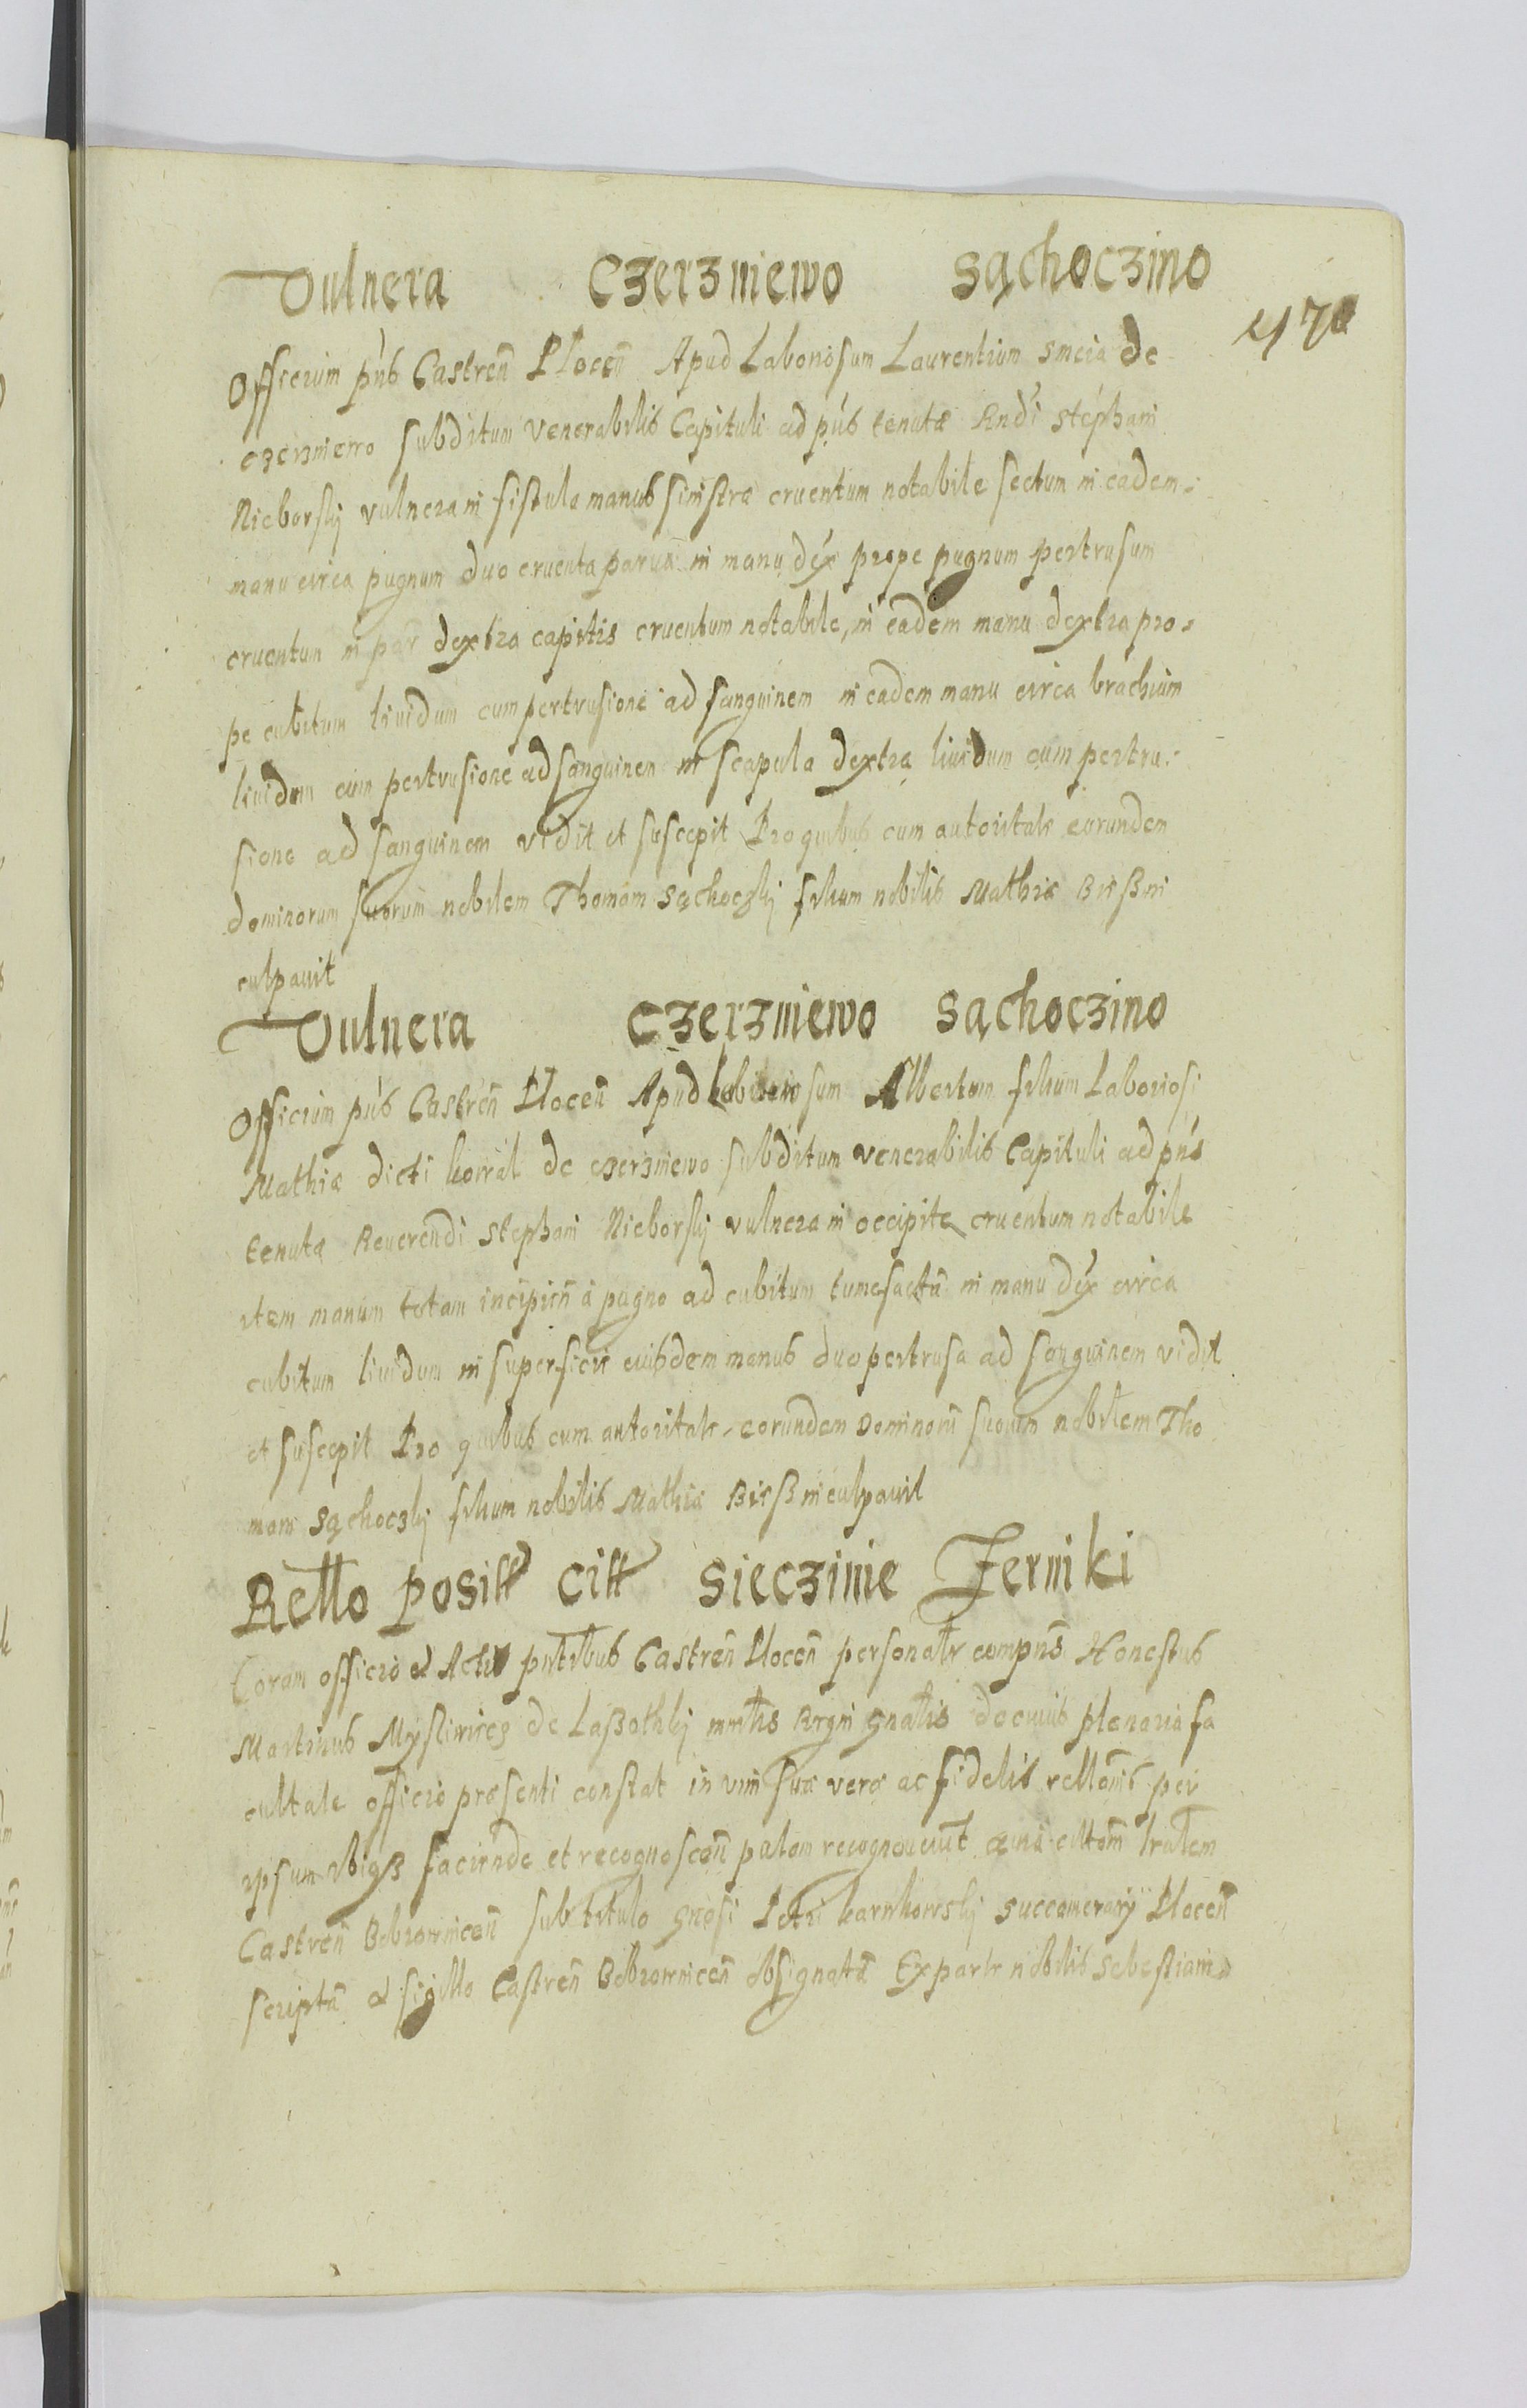 Vulnera Czerzniewo Sąchoczino
470
Officium pñs Castreñ Ploceñ Apud Laboriosum Laurentium Smeia de
czerzniewo subditum Venerabilis Capituli ad pñs tenutæ Rndi Stephani
Nieborskj vulnera in fistula manus sinistræ cruentum notabile sectum in eadem
manu circa pugnum duo cruenta parua in manu dex̃ prope pugnum pertrusum
cruentum in par dextra capitis cruentum notabile, in eadem manu dextra pro-
pe cubitum liuidum cum pertrusione ad sanguinem in eadem manu circa brachium
liuidum cum pertrusione ad sanguinem in scapula dextra liuidum cum pertru-
sione ad sanguinem vidit et suscepit Pro quibus cum autoritate eorundem
dominorum suorum nobilem Thomam Sąchoczkj filium nobilis Mathiæ Bißin
culpauit
Vulnera Czerzniewo Sąchoczino
Officium pñs Castreñ Ploceñ Apud Laboriosum Albertum filium Laboriosi
Mathiæ dicti kowal de czerzniewo subditum venerabilis Capituli ad pñs
tenutæ Reuerendi Stephani Nieborskj vulnera in occipite cruentum notabile
item manum totam incipieñ à pugno ad cubitum tumefactã in manu dex̃ circa
cubitum liuidum in superficie eiusdem manus duo pertrusa ad sanguinem vidit
et suscepit Pro quibus cum autoritate eorundem Dominorũ suorum nobilem Tho
mam Sąchoczkj filium nobilis Mathiæ Bißin culpauit
Rello posiłł ciłł Sieczinie Zerniki
Coram officio et Actis pñtibus Castreñ Ploceñ personalr compñs Honestus
Martinus Mysliwiecz de Laßothkj mrtls Regni gnalis de cuius plenaria fa
cultate officio præsenti constat in vim suæ veræ ac fidelis rellõnis per
ipsum ibiqß faciende et recognosceñ palam recognouit cittõm tralem
Castreñ Bobrowniceñ sub titulo gnosi Petri karnkowskj succamerarÿ Ploceñ
scriptã et sigillo Castreñ Bobrowniceñ obsignatã Ex parte nobilis Sebastiani